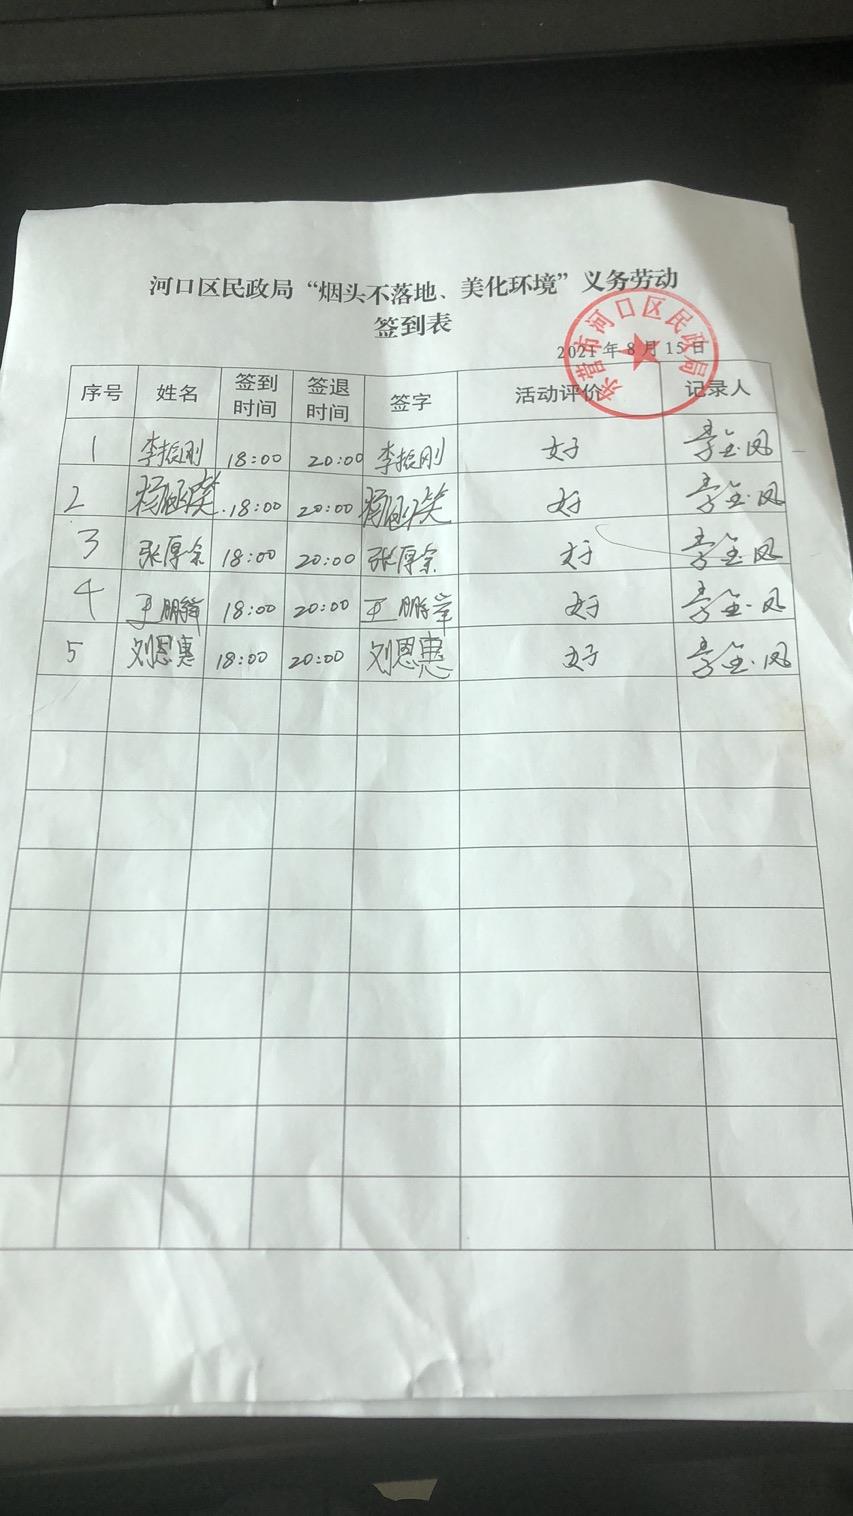 河口区民政局“烟头不落地、美化环境”义务劳动
签到表
东营市河口区民政局
2021年8月15日
序号 姓名 签到时间 签退时间 签字 活动评价 记录人
1 李振刚 18:00 20:00 李振刚 好
2 18:00 20:00 好
3 张厚宗 18:00 20:00 张厚宗 好
4 王鹏 18:00 20:00 王鹏 好
5 刘恩惠 18:00 20:00 刘恩惠 好